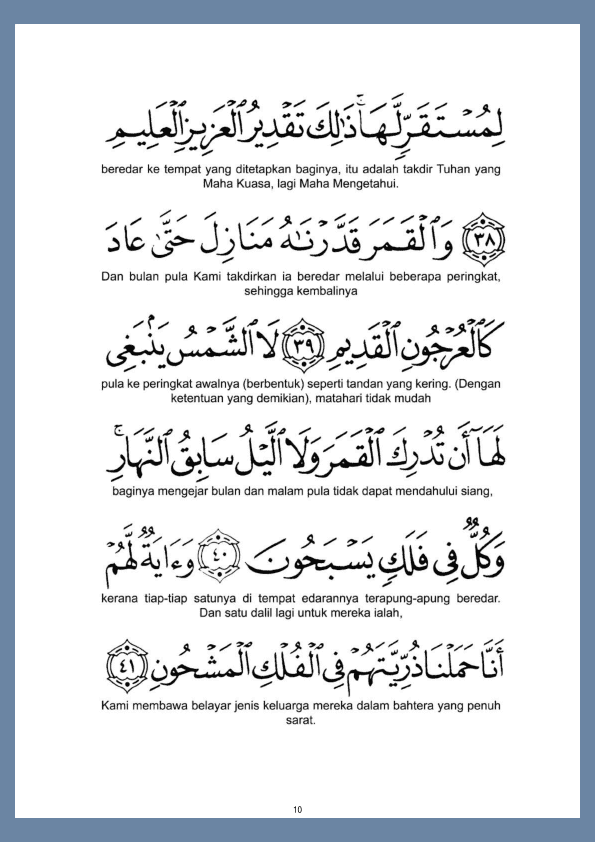 لِمُسْتَقَرٍّ لَّهَا ۚ ذَٰلِكَ تَقْدِيرُ ٱلْعَزِيزِ ٱلْعَلِيمِ
beredar ke tempat yang ditetapkan baginya, itu adalah takdir Tuhan yang
Maha Kuasa, lagi Maha Mengetahui.
٣٨ وَٱلْقَمَرَ قَدَّرْنَٰهُ مَنَازِلَ حَتَّىٰ عَادَ
Dan bulan pula Kami takdirkan ia beredar melalui beberapa peringkat,
sehingga kembalinya
كَٱلْعُرْجُونِ ٱلْقَدِيمِ ٣٩ لَا ٱلشَّمْسُ يَنۢبَغِى
pula ke peringkat awalnya (berbentuk) seperti tandan yang kering. (Dengan
ketentuan yang demikian), matahari tidak mudah
لَهَآ أَن تُدْرِكَ ٱلْقَمَرَ وَلَا ٱلَّيْلُ سَابِقُ ٱلنَّهَارِ ۚ
baginya mengejar bulan dan malam pula tidak dapat mendahului siang,
وَكُلٌّ فِى فَلَكٍ يَسْبَحُونَ ٤٠ وَءَايَةٌ لَّهُمْ
kerana tiap-tiap satunya di tempat edarannya terapung-apung beredar.
Dan satu dalil lagi untuk mereka ialah,
أَنَّا حَمَلْنَا ذُرِّيَّتَهُمْ فِى ٱلْفُلْكِ ٱلْمَشْحُونِ ٤١
Kami membawa belayar jenis keluarga mereka dalam bahtera yang penuh
sarat.
10